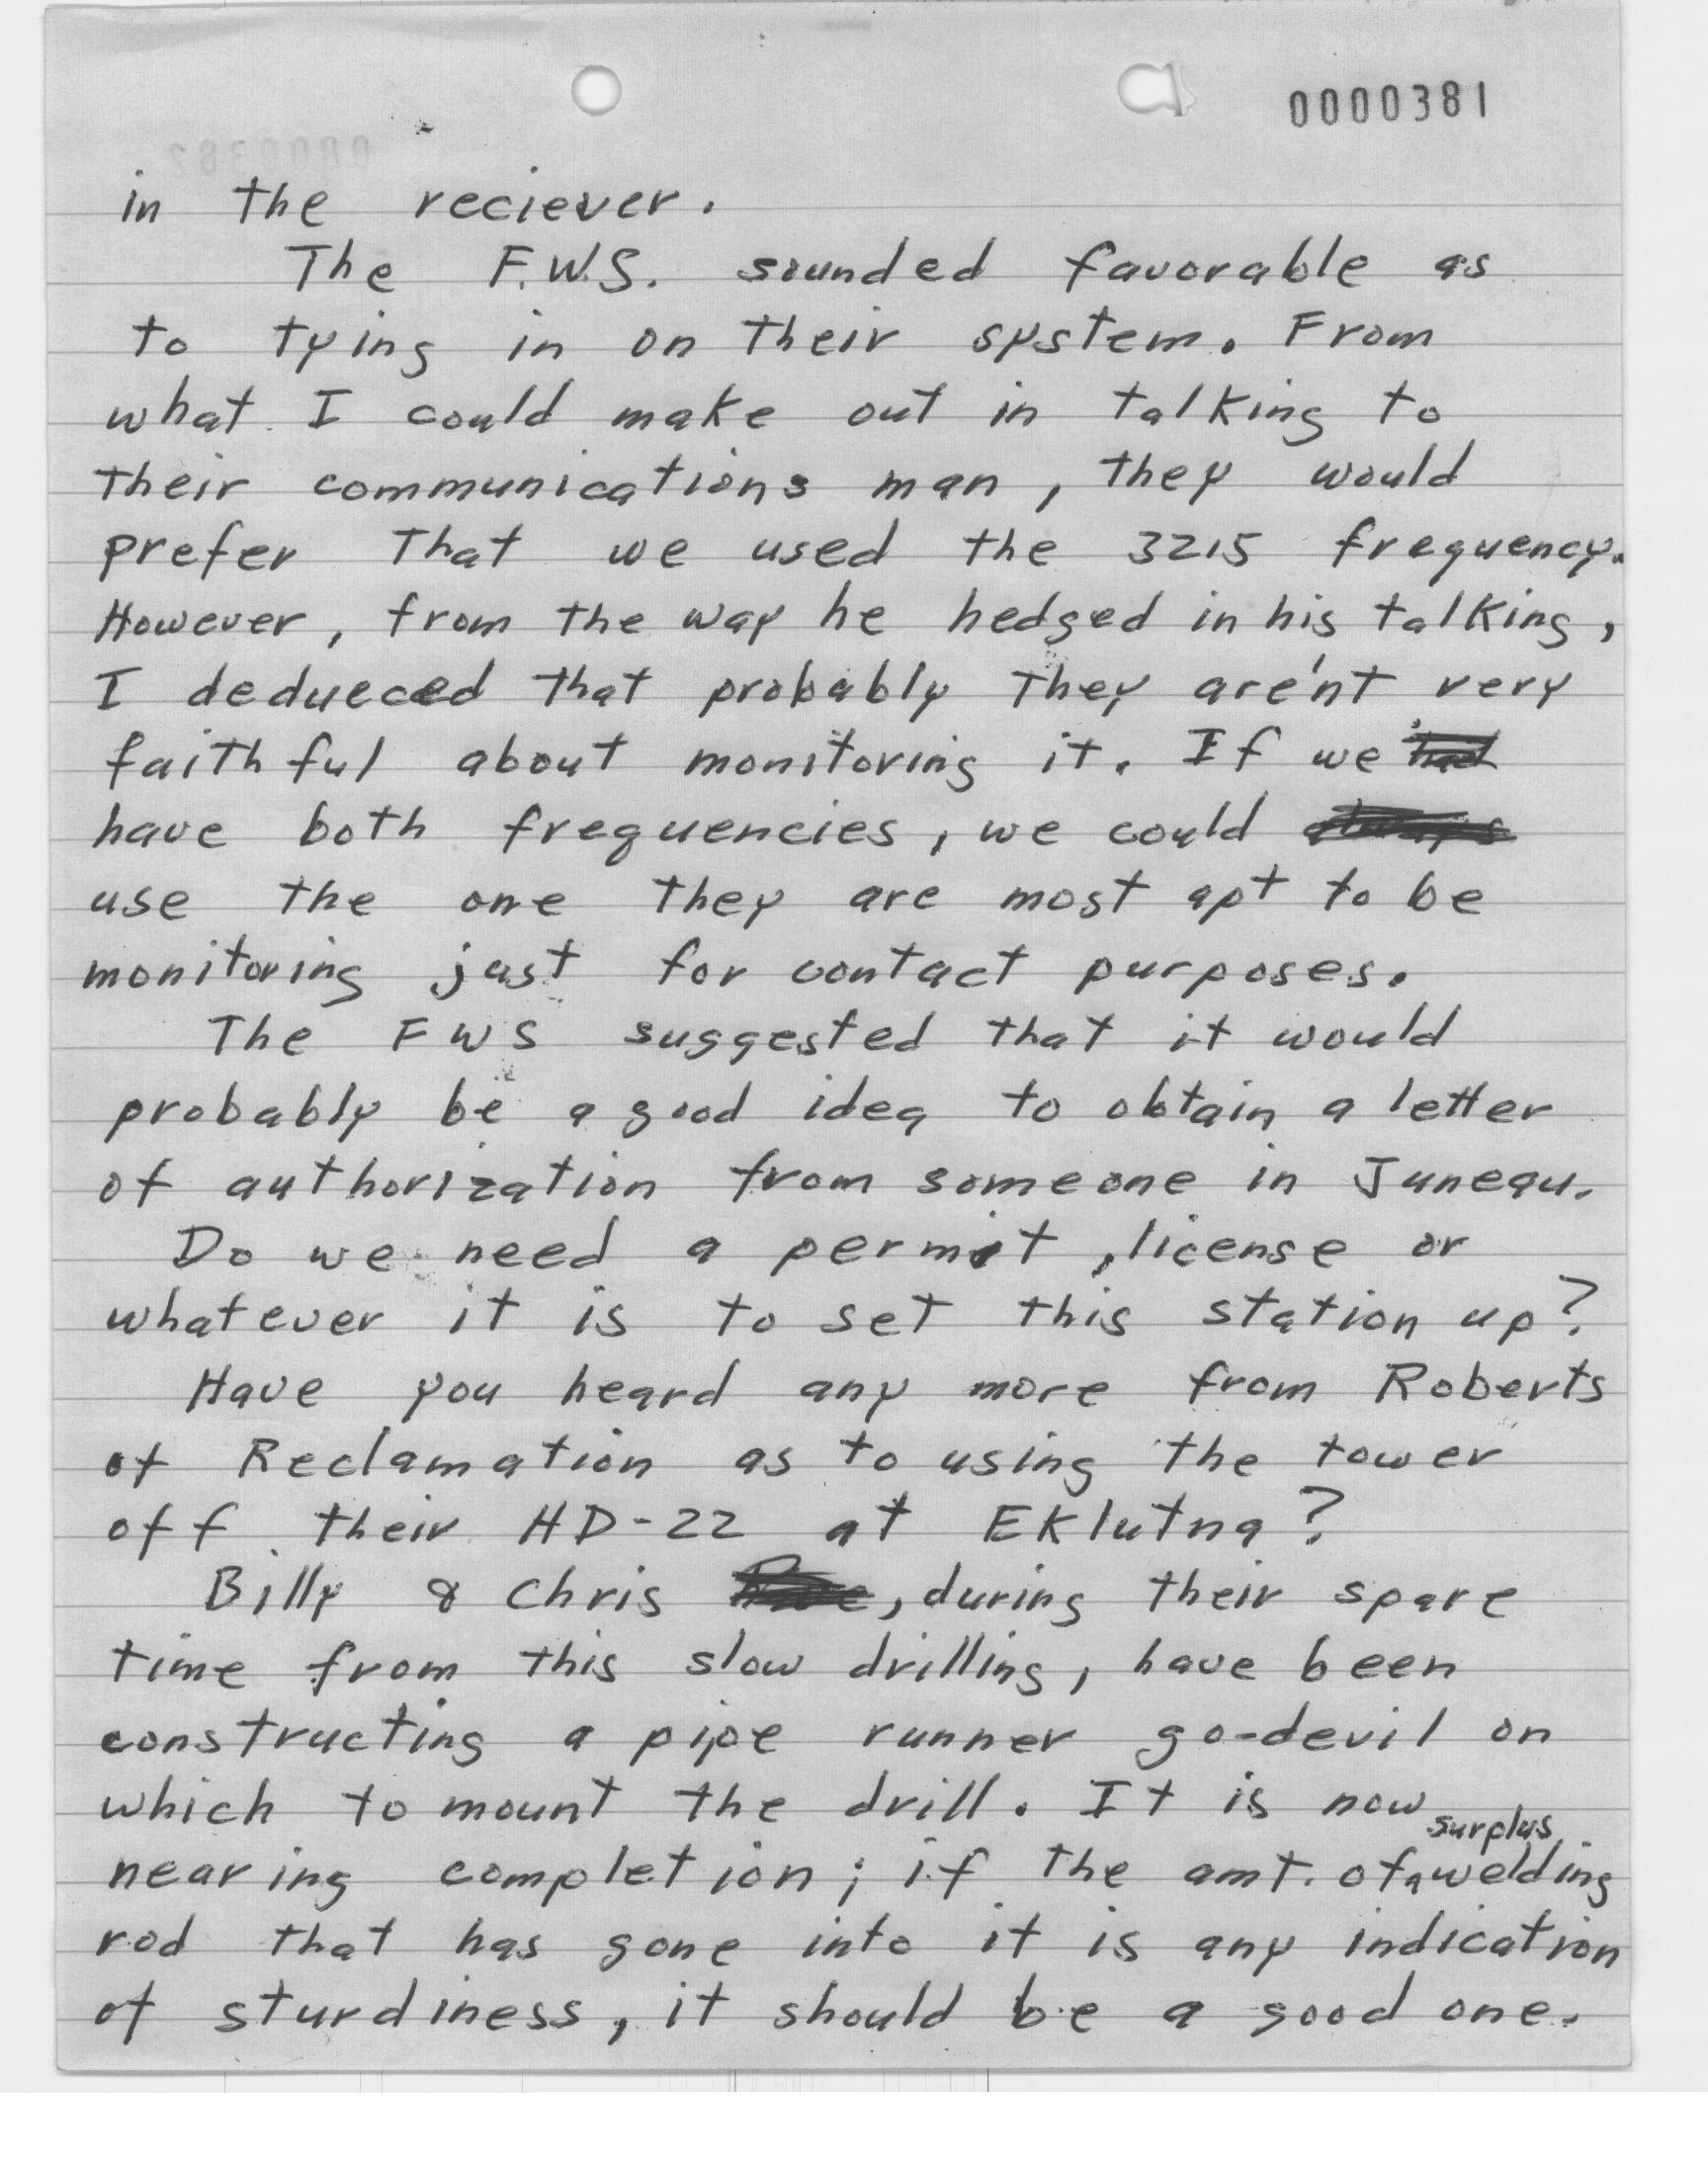 0000381
in the reciever.
The F.W.S. sounded favorable as
to tying in on their system. From
what I could make out in talking to
their communications man, they would
prefer that we used the 3215 frequency.
However, from the way he hedged in his talking,
I dedueced that probably they are'nt very
faithful about monitoring it. If we had
have both frequencies, we could always
use the one they are most apt to be
monitoring just for contact purposes.
The FWS suggested that it would
probably be a good idea to obtain a letter
of authorization from someone in Juneau.
Do we need a permit, license or
whatever it is to set this station up?
Have you heard any more from Roberts
of Reclamation as to using the tower
off their HD-22 at Eklutna?
Billy & Chris, during their spare
time from this slow drilling, have been
constructing a pipe runner go-devil on
which to mount the drill. It is now
surplus
nearing completion; if the amt. of welding
rod that has gone into it is any indication
of sturdiness, it should be a good one.